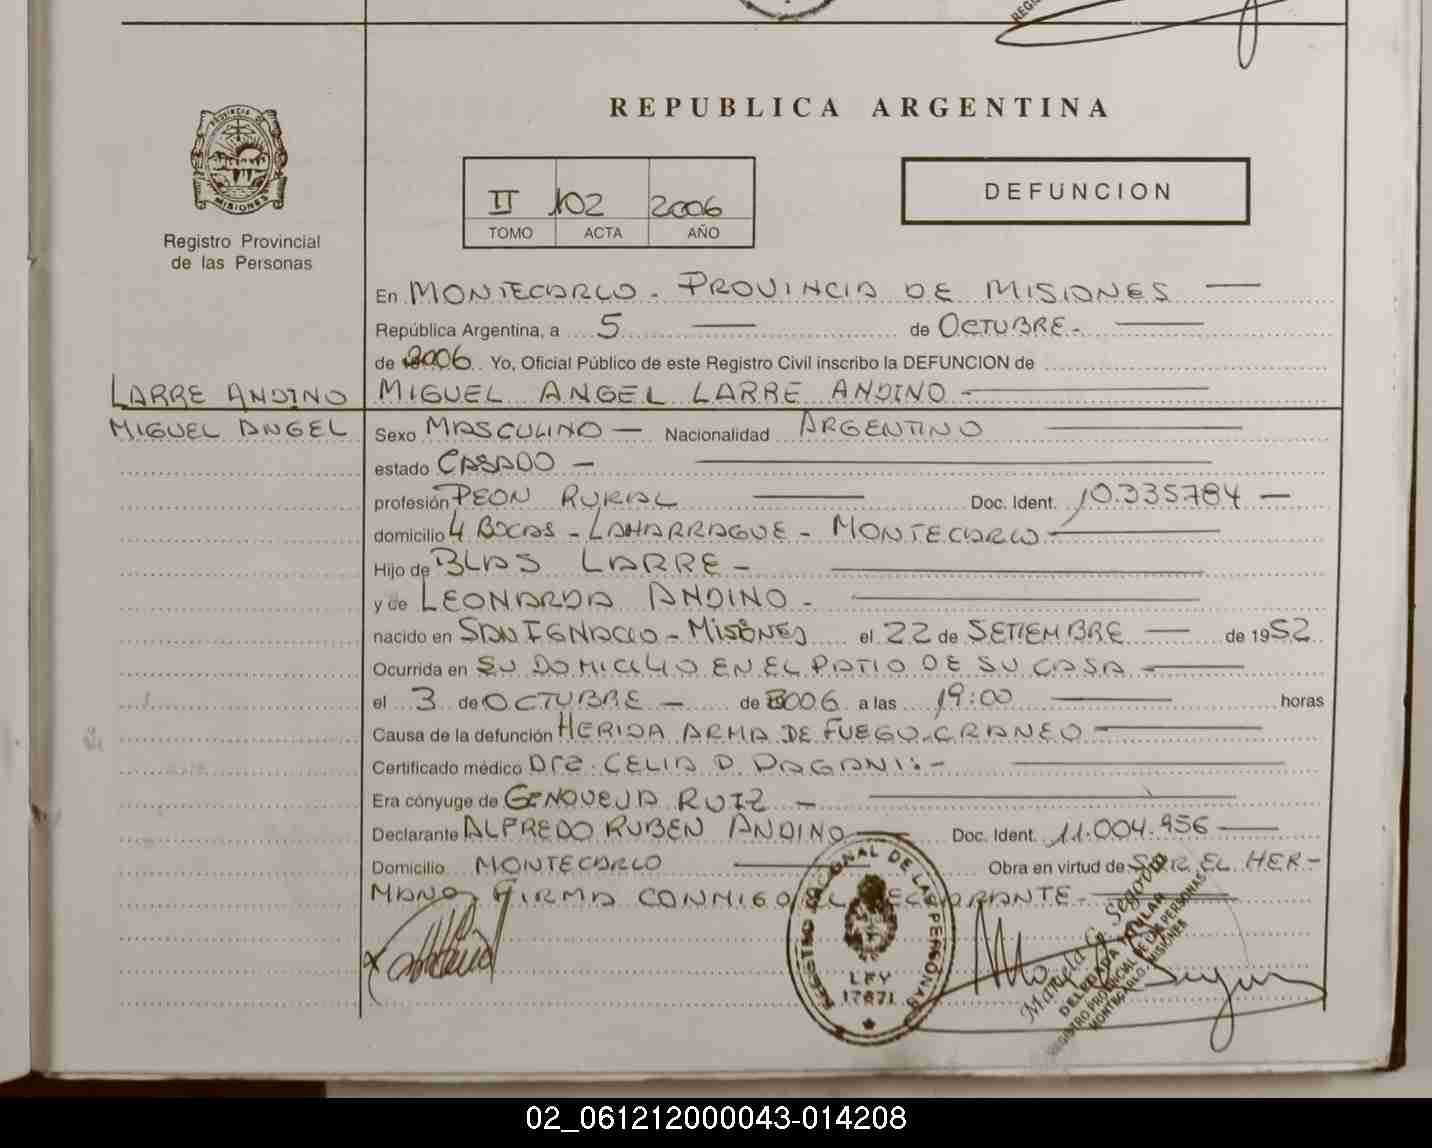 REPUBLICA ARGENTINA
PROVINCIA DE
MISIONES
Registro Provincial
de las Personas
DEFUNCION
II 102 2006
TOMO ACTA AÑO
En MONTECARLO - PROVINCIA DE MISIONES
República Argentina, a 5 de OCTUBRE -
de 2006 Yo, Oficial Público de este Registro Civil inscribo la DEFUNCION de
LARRE ANDINO
MIGUEL ANGEL
MIGUEL ANGEL LARRE ANDINO -
Sexo MASCULINO - Nacionalidad ARGENTINO
estado CASADO -
profesión PEON RURAL Doc. Ident. 10.335784 -
domicilio 4 BOCAS - LAHARRAGUE - MONTECARLO
Hijo de BLAS LARRE -
y de LEONARDA ANDINO -
nacido en SAN IGNACIO - MISIONES el 22 de SETIEMBRE de 1952
Ocurrida en SU DOMICILIO EN EL PATIO DE SU CASA -
el 3 de OCTUBRE - de 2006 a las 19:00 horas
Causa de la defunción HERIDA ARMA DE FUEGO - CRANEO -
Certificado médico Dra. CELIA D. PAGANI: -
Era cónyuge de GENOVEVA RUIZ -
Declarante ALFREDO RUBEN ANDINO Doc. Ident. 11.004.956
Domicilio MONTECARLO Obra en virtud de SER EL HER-
MANO, FIRMA CONMIGO EL DECLARANTE -
REGISTRO NACIONAL DE LAS PERSONAS
LEY
17671
DELEGADA TITULAR
REGISTRO PROVINCIAL DE LAS PERSONAS
MONTECARLO, MISIONES
02_061212000043-014208